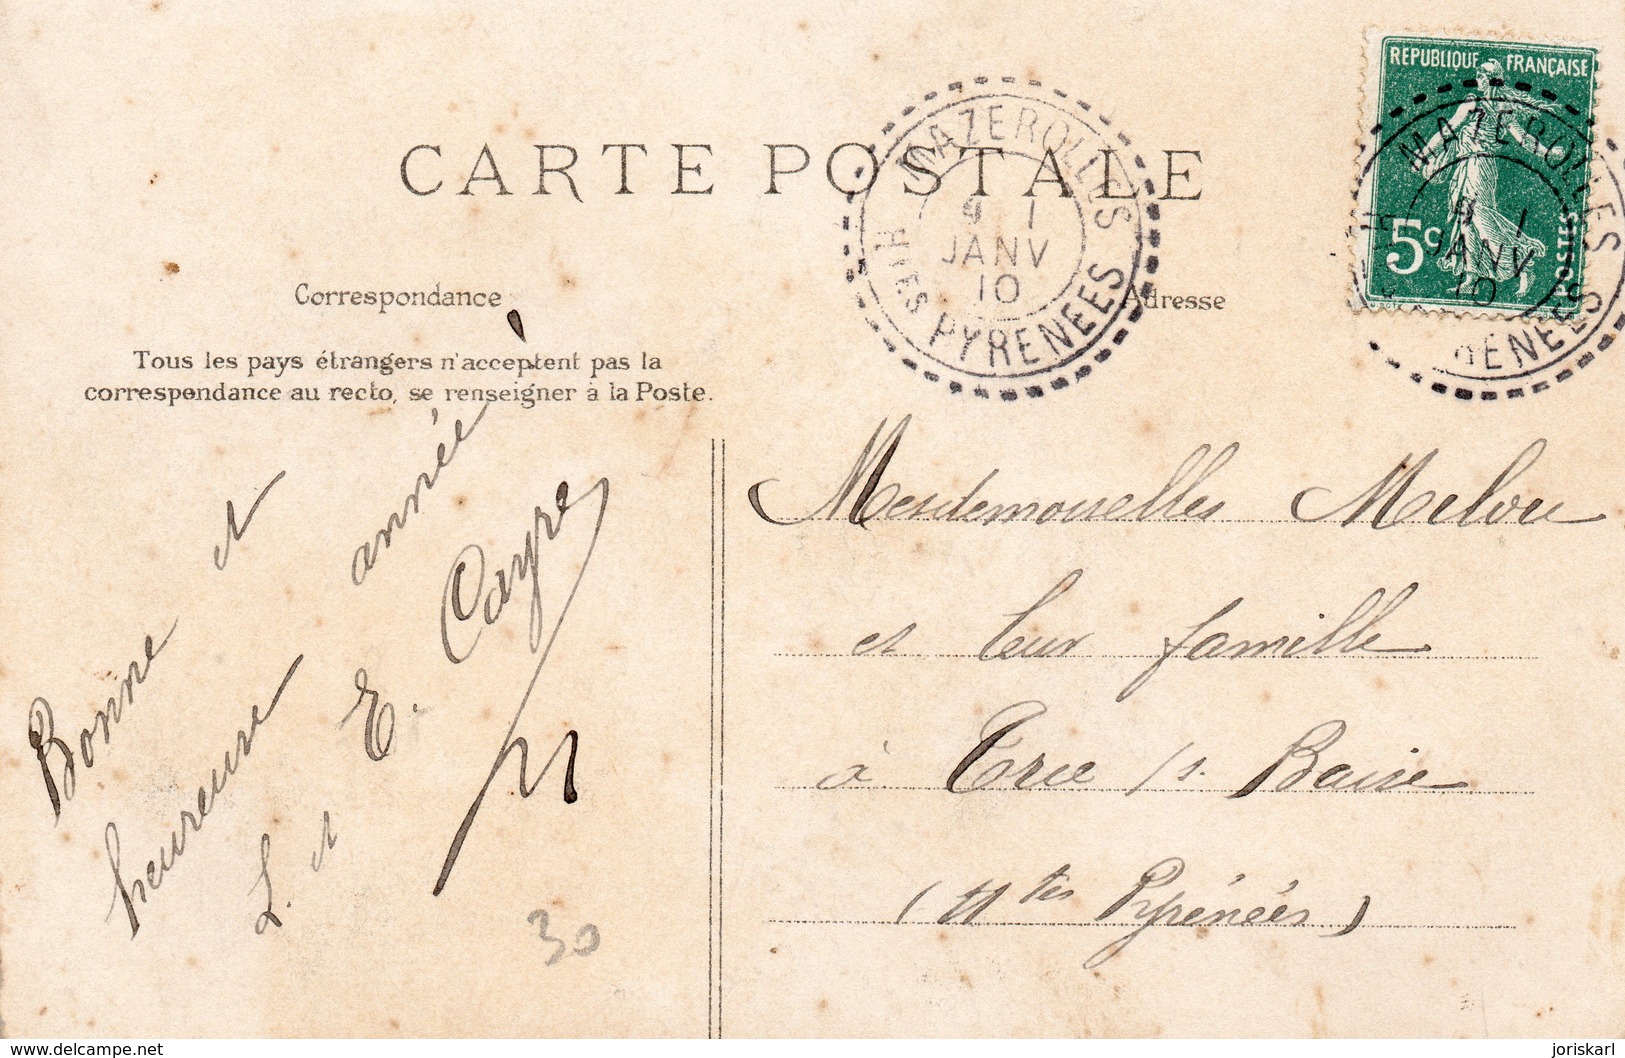 CARTE POSTALE
Correspondance
Adresse
Tous les pays étrangers n'acceptent pas la
correspondance au recto, se renseigner à la Poste.
MAZEROLLES
9 1
JANV
10
HTES PYRENEES
REPUBLIQUE FRANÇAISE
5c
POSTES
MAZEROLLES
9 1
JANV
10
H PYRENEES
Bonne et
heureuse année
L. et E. Cayre
30
Mesdemoiselles Melou
et leur famille
à Trie /s. Baïse
(Htes Pyrénées)
www.delcampe.net
joriskarl